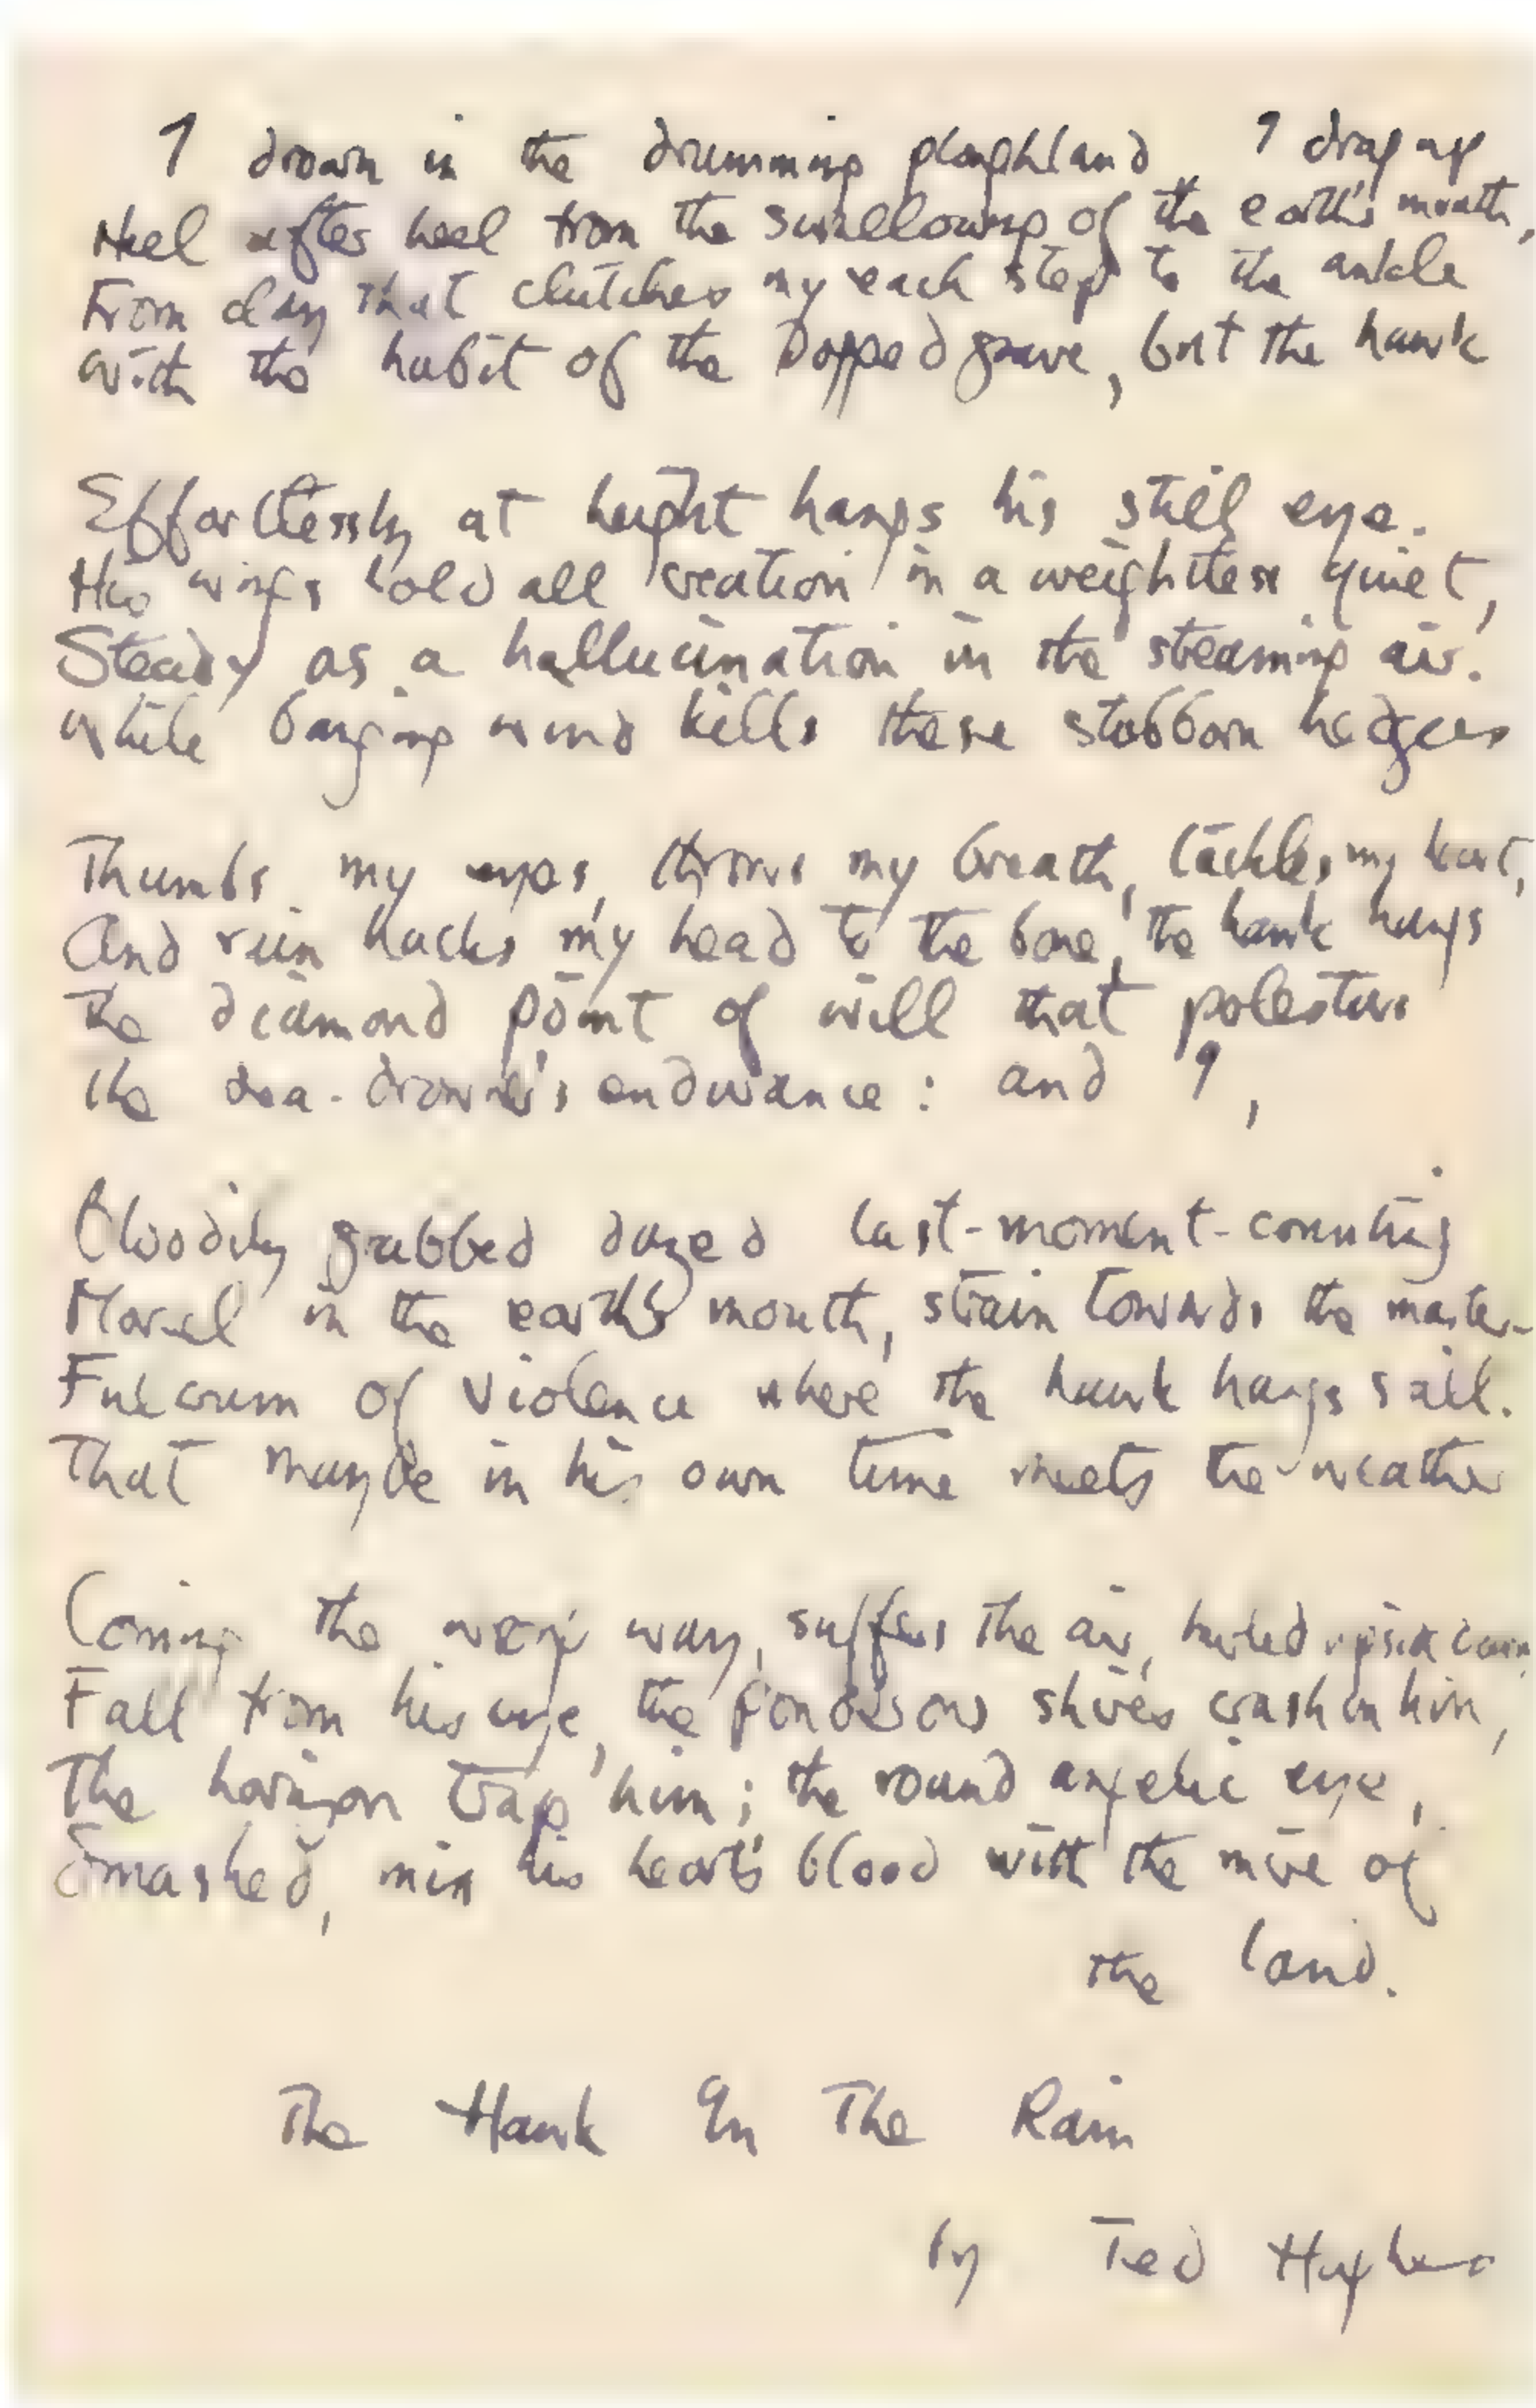 I drown in the drumming ploughland I drag up
Heel after heel from the swallowing of the earth's mouth,
From clay that clutches my each step to the ankle
With the habit of the Dogged grave, but the hawk
Effortlessly at height hangs his still eye.
His wings hold all creation in a weightless quiet,
Steady as a hallucination in the streaming air.
While banging wind kills these stubborn hedges
Thumbs my eyes, throws my breath, tackles my heart,
And rain hacks my head to the bone, the hawk hangs
The diamond point of will that polestars
The sea-drowner's endurance: and I,
Bloodily grabbed dazed last-moment-counting
Morsel in the earth's mouth, strain towards the master-
Fulcrum of violence where the hawk hangs still.
That maybe in his own time meets the weather
Coming the wrong way, suffers the air, hurled upside down,
Fall from his eye, the ponderous shires crash on him,
The horizon trap him; the round angelic eye,
Smashed, mix his heart's blood with the mire of
the land.
The Hawk In The Rain
by Ted Hughes